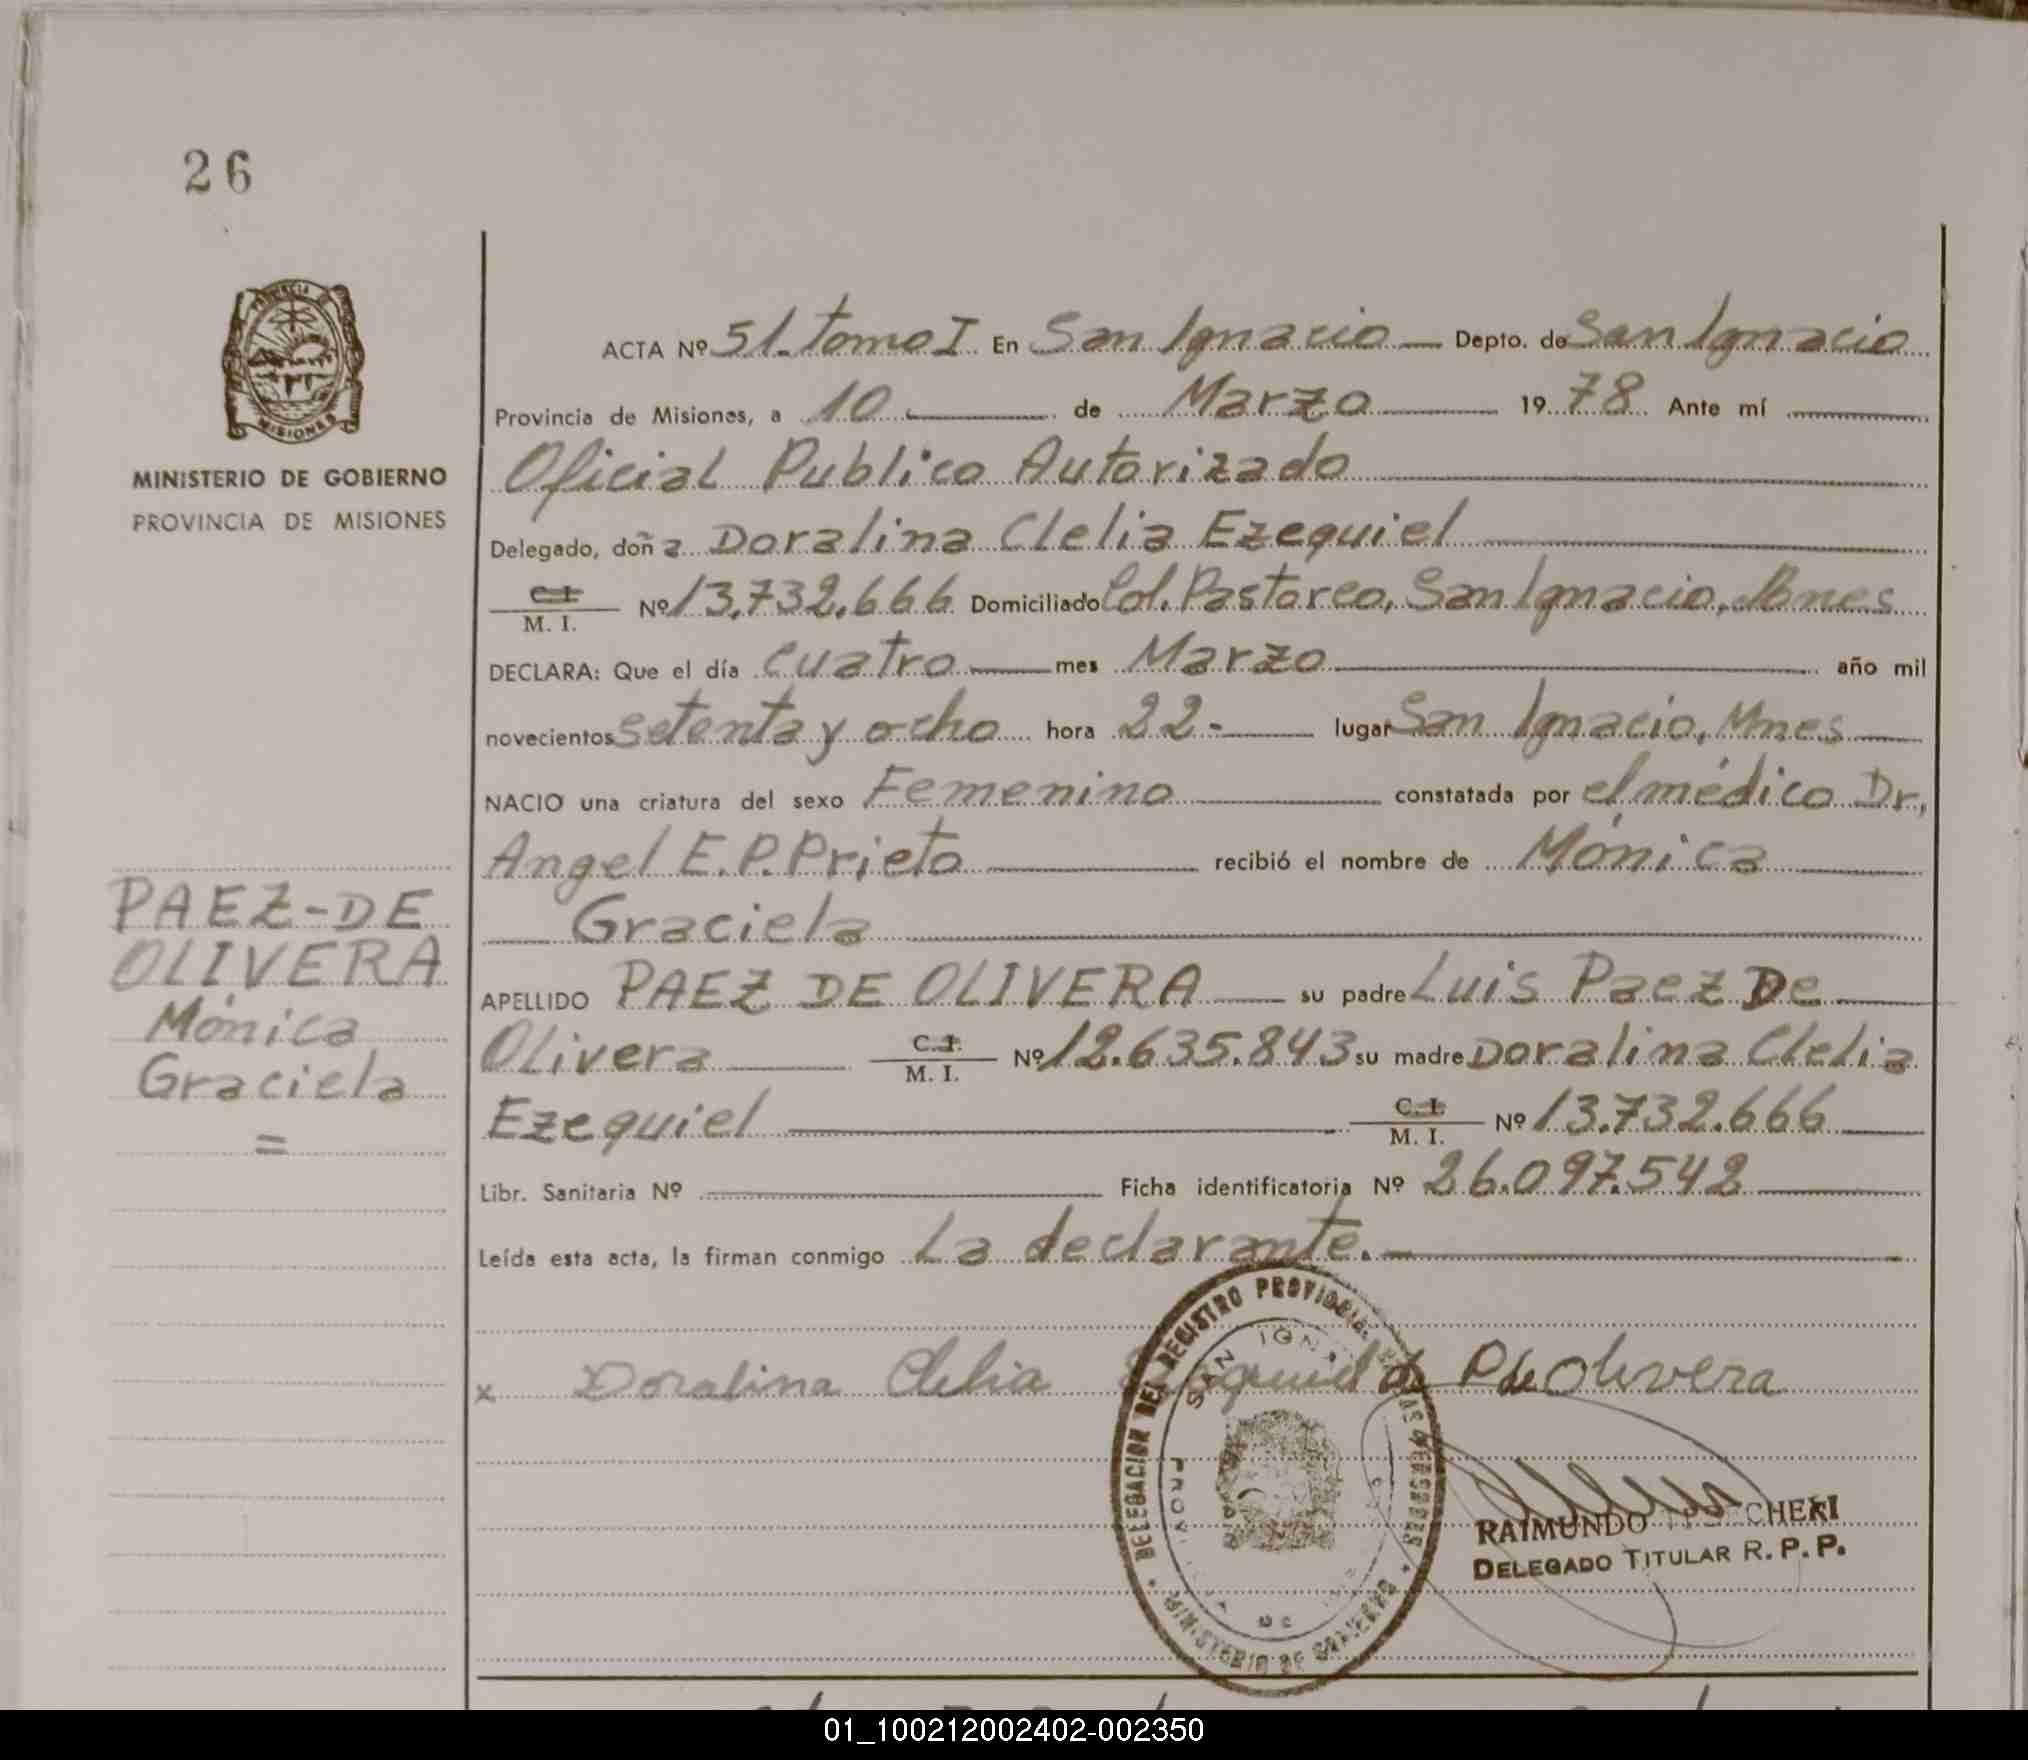 26
PROVINCIA DE
MISIONES
MINISTERIO DE GOBIERNO
PROVINCIA DE MISIONES
PAEZ-DE
OLIVERA
Mónica
Graciela
=
ACTA Nº 51.tomo I En San Ignacio Depto. de San Ignacio
Provincia de Misiones, a 10 de Marzo 1978 Ante mí
Oficial Publico Autorizado
Delegado, doña Doralina Clelia Ezequiel
C.I. / M. I. Nº 13.732.666 Domiciliado Col. Pastoreo, San Ignacio, Mnes
DECLARA: Que el día cuatro mes Marzo año mil
novecientos setenta y ocho hora 22- lugar San Ignacio, Mnes
NACIO una criatura del sexo Femenino constatada por el médico Dr,
Angel E.P.Prieto recibió el nombre de Mónica
Graciela
APELLIDO PAEZ DE OLIVERA su padre Luis Paez De
Olivera C.I. / M. I. Nº 12.635.843 su madre Doralina Clelia
Ezequiel C.I. / M. I. Nº 13.732.666
Libr. Sanitaria Nº Ficha identificatoria Nº 26.097.542
Leída esta acta, la firman conmigo La declarante.-
x Doralina Clelia Ezequiel de P de Olivera
DELEGACION DEL REGISTRO PROVINCIAL DE LAS PERSONAS
SAN IGNACIO
MINISTERIO DE GOBIERNO
RAIMUNDO CHEKI
DELEGADO TITULAR R. P. P.
01_100212002402-002350